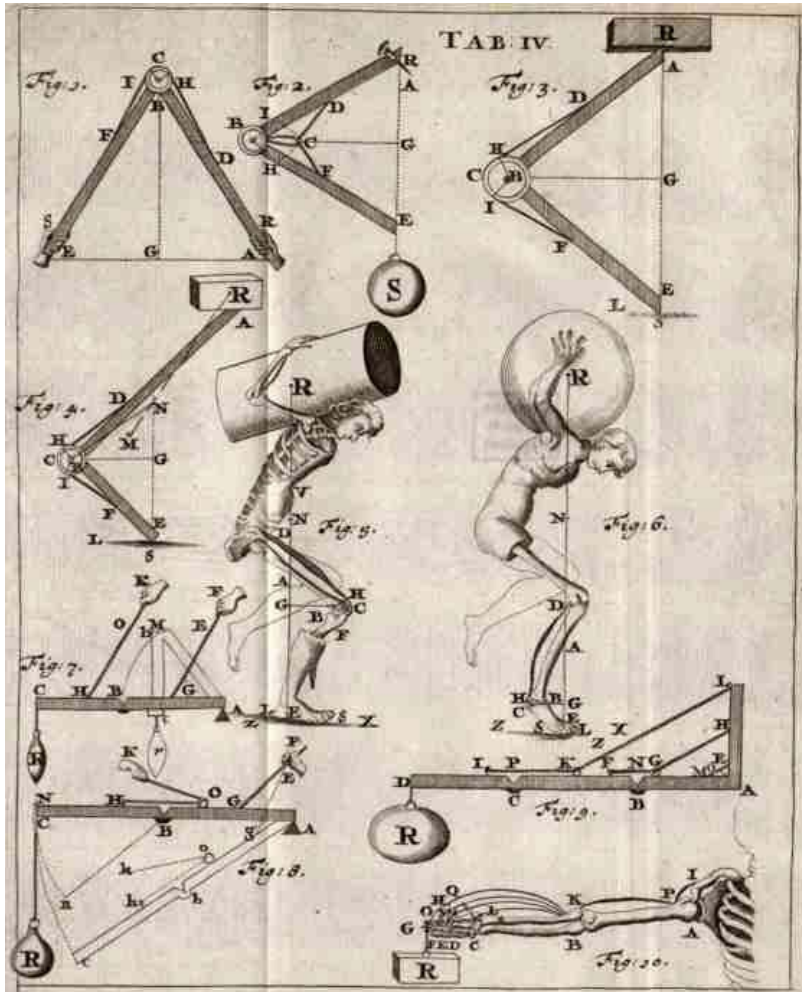 TAB: IV.
Fig: 1.
C
I H
B
F
D
S R
E G A
Fig: 2.
R
A
I D
B C G
H F
E
S
Fig: 3.
R
A
D
H
C B G
I
F
E
L
S
Fig: 4.
R
A
D N
M
H
C B G
I
F
E
L
S
Fig: 5.
R
V
N
D
A H
G B C
F
Z I E S X
Fig: 6.
R
N
D
A
H B G
C E
Z S L X
Z
Fig: 7.
K F
O b M E
C H B G A
R r
Fig: 8.
K F
E
H O G
N
C B S A
k o
n h b
c
R
Fig: 9.
L
H
I P K F N G M E
D C B A
R
Fig: 10.
I
P
O K
H
G L
F E D C B A
R